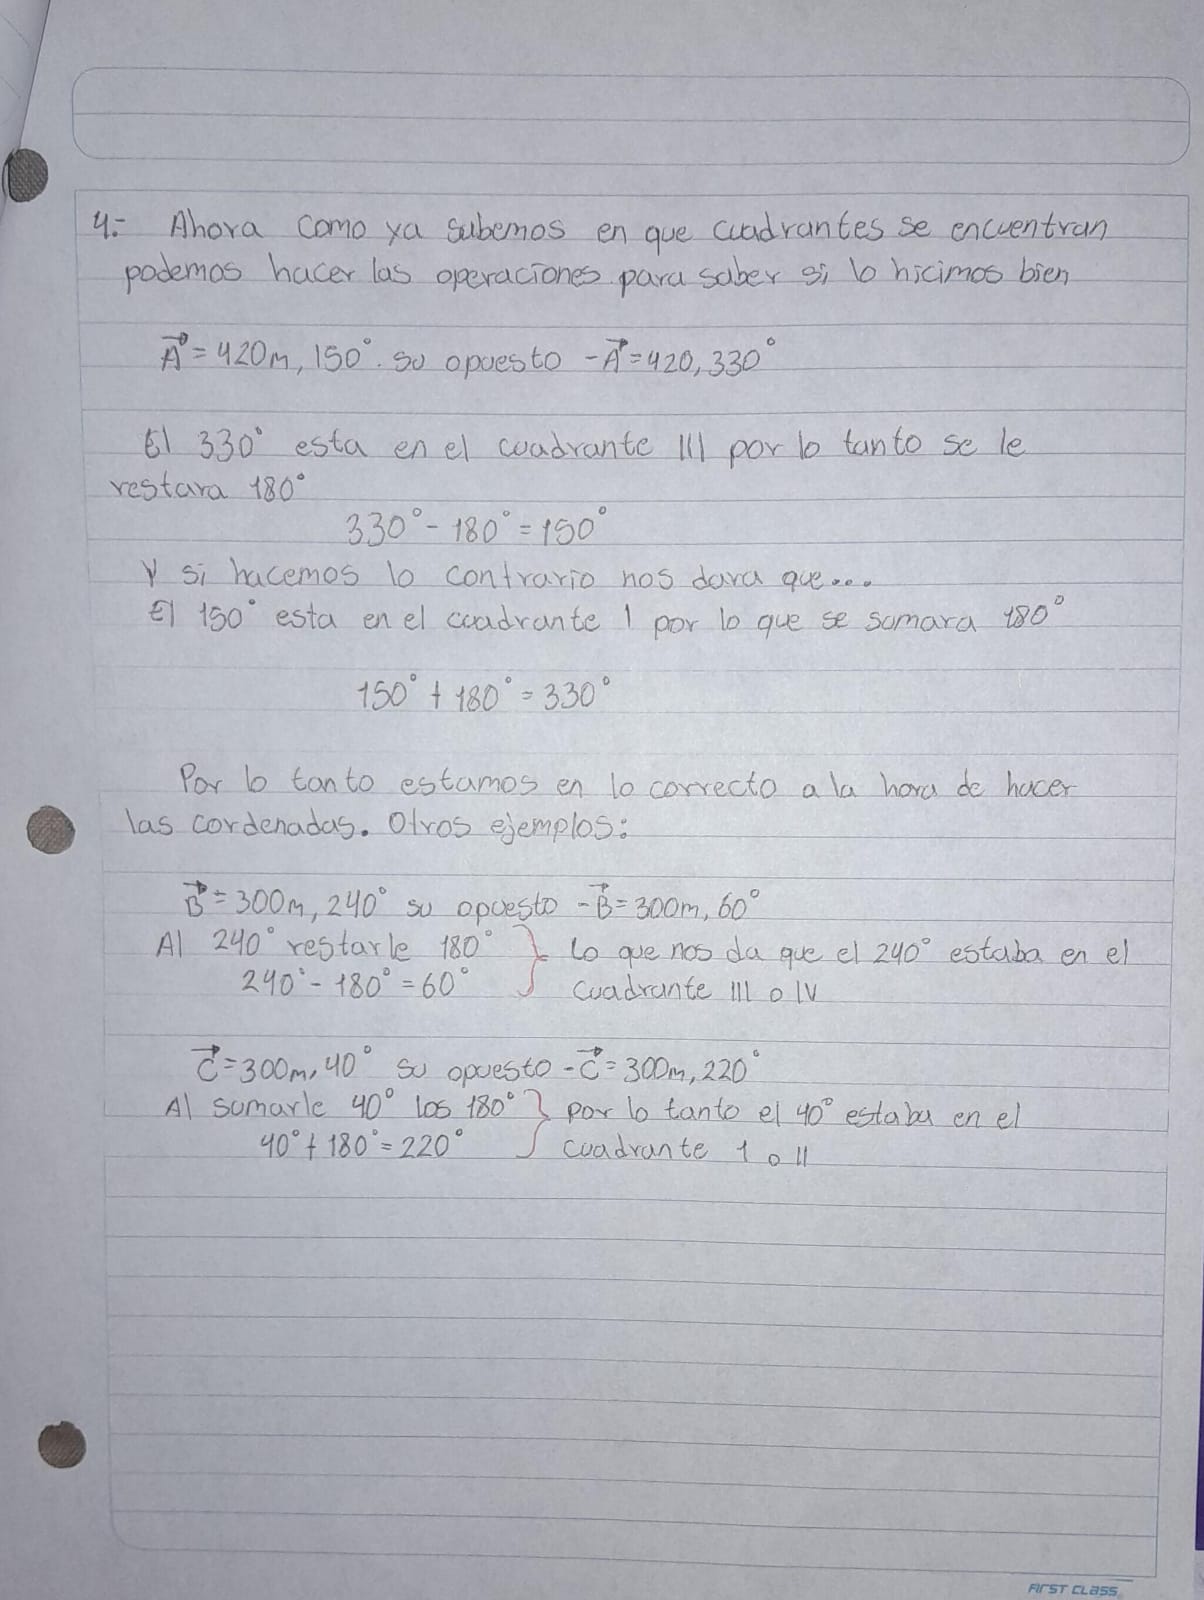 4.- Ahora como ya sabemos en que cuadrantes se encuentran
podemos hacer las operaciones para saber si lo hicimos bien
A⃗ = 420m, 150°. su opuesto -A⃗ = 420, 330°
El 330° esta en el cuadrante III por lo tanto se le
restara 180°
330° - 180° = 150°
Y si hacemos lo contrario nos dara que...
El 150° esta en el cuadrante I por lo que se sumara 180°
150° + 180° = 330°
Por lo tanto estamos en lo correcto a la hora de hacer
las cordenadas. Otros ejemplos:
B⃗ = 300m, 240° su opuesto -B⃗ = 300m, 60°
Al 240° restarle 180° } lo que nos da que el 240° estaba en el
240° - 180° = 60° cuadrante III o IV
C⃗ = 300m, 40° su opuesto -C⃗ = 300m, 220°
Al sumarle 40° los 180° } por lo tanto el 40° estaba en el
40° + 180° = 220° cuadrante I o II
FIRST CLASS